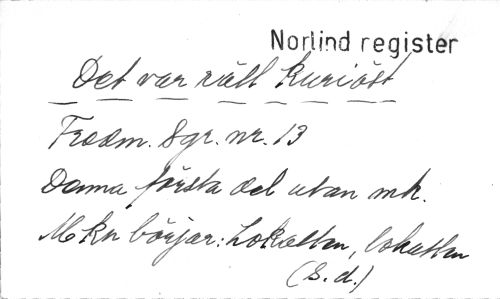 Norlind register
Det var rätt kuriöst
Fredm. Sgr. nr. 13
Denna första del utan mk.
Mkn börjar: Lokatten, lokatten
(s.d.)